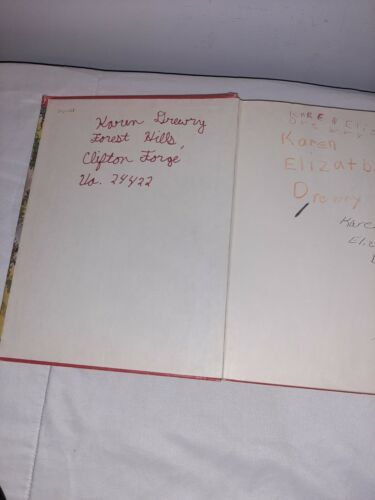 Karen Drewry
Forest Hills,
Clifton Forge
Va. 24422
KAREN ELIZ
Karen
Elizatb
Drewry
Kare
Eliz